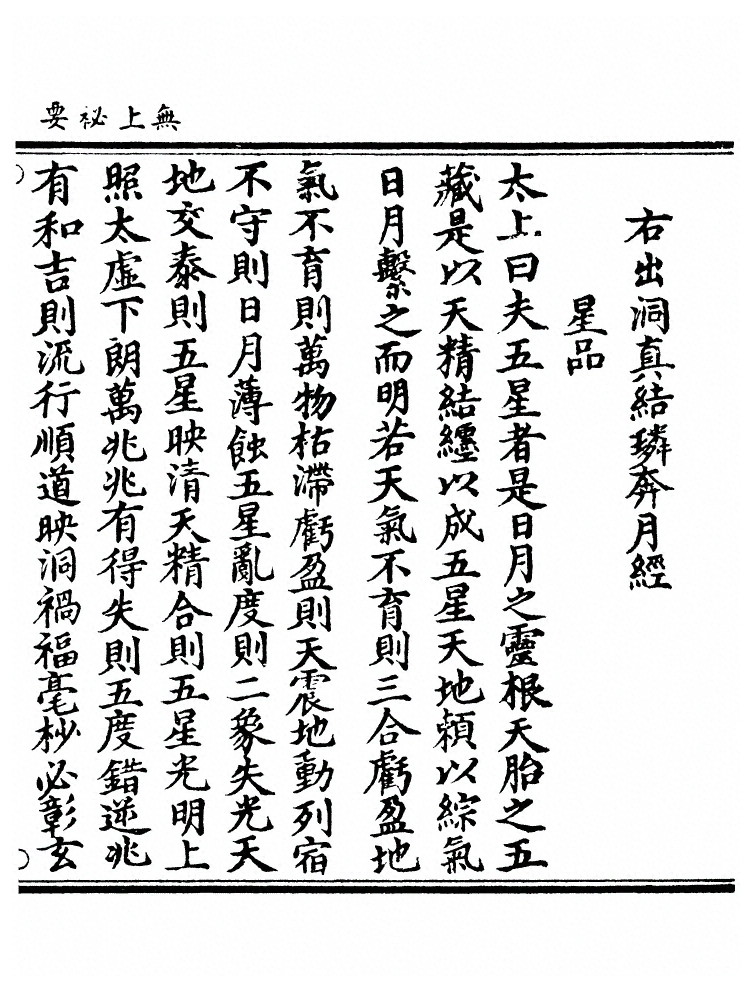 無上祕要
右出洞真結璘奔月經
星品
太上曰夫五星者是日月之靈根天胎之五
藏是以天精結纒以成五星天地賴以綜氣
日月繫之而明若天氣不育則三合虧盈地
氣不育則萬物枯滯虧盈則天震地動列宿
不守則日月薄蝕五星亂度則二象失光天
地交泰則五星映清天精合則五星光明上
照太虛下朗萬兆兆有得失則五度錯逆兆
有和吉則流行順道映洞禍福毫杪必彰玄